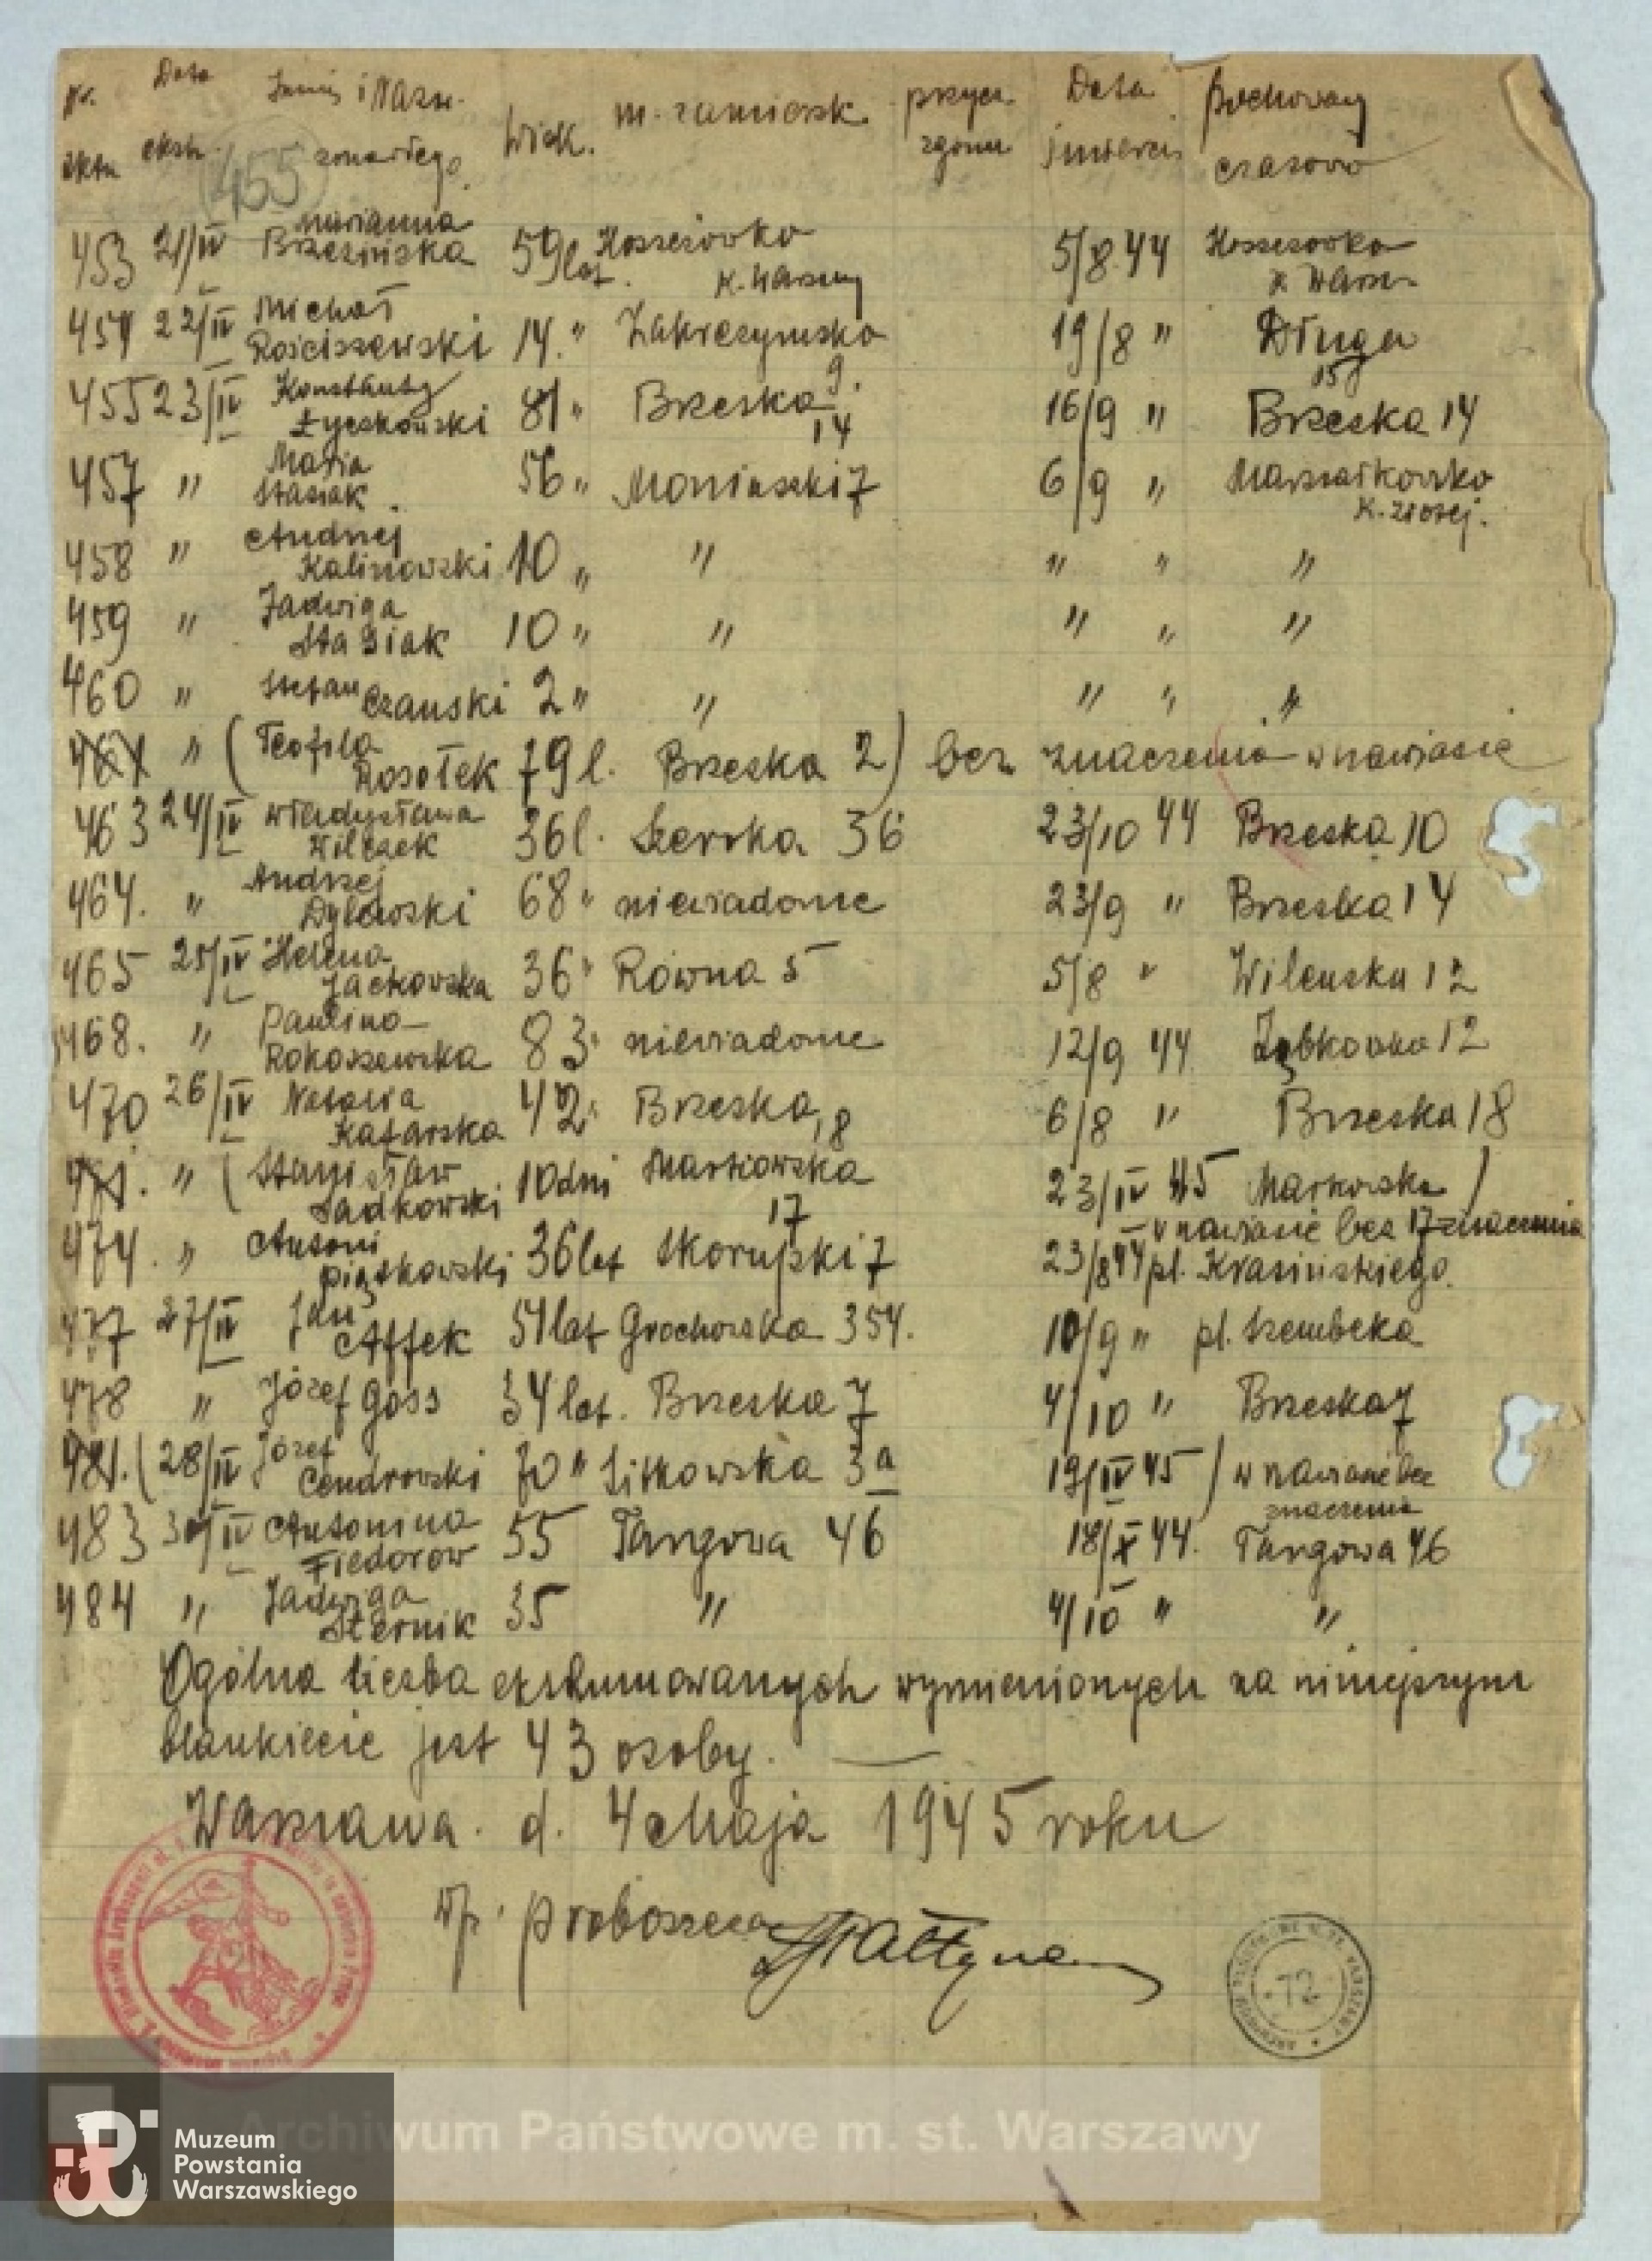 Nr. aktu Data eksh. Imię i Nazw. zmarłego Wiek. m. zamieszk. przycz. zgonu Data śmierci Pochowany czasowo
455
453 21/IV Marianna Brzezińska 59 lat. Kosszczówka K. Warszawy 5/8.44 Kosszczówka K Warsz
454 22/IV Michał Rościszewski 14. " Zakroczymska 9. 19/8 " Długa 15
455 23/IV Konstanty Łyczkowski 81 " Brzeska 14 16/9 " Brzeska 14
457 " Maria Stasiak. 56 " Moniuszki 7 6/9 " Marszałkowska K. złotej.
458 " Andrzej Kalinowski 10 " " " " "
459 " Jadwiga Stasiak 10 " " " " "
460 " Stefan Czauski 2 " " " " "
461 " ( Teofila Rosołek 79 l. Brzeska 2) bez znaczenia w nawiasie
463 24/IV Władysława Wilczek 36 l. Szeroka 36 23/10 44 Brzeska 10
464. " Andrzej Dylewski 68 " niewiadome 23/9 " Brzeska 14
465 25/IV Helena Jackowska 36 " Równa 5 5/8 " Wileńska 12
468. " Paulina Rokoszewska 83 " niewiadome 12/9 44 Ząbkowska 12
470 26/IV Natalia Kafarska 42 " Brzeska 18 6/8 " Brzeska 18
471. " ( Stanisław Sadkowski 10 dni Markowska 17 23/IV 45 Markowska 17 )
w nawiasie bez znaczenia
474. " Antoni Piątkowski 36 lat Skorupki 7 23/8 44 pl. Krasińskiego.
477 27/IV Jan Affek 54 lat Grochowska 354. 10/9 " pl. Szembeka
478 " Józef Goss 34 lat. Brzeska 7 4/10 " Brzeska 7
481. ( 28/IV Józef Cendrowski 70 " Sitkowska 3a 19/IV 45 ) w nawiasie bez znaczenia
483 30/IV Antonina Fiedorow 55 Targowa 46 18/X 44. Targowa 46
484 " Jadwiga Sternik 35 " 4/10 " "
Ogólna liczba ekshumowanych wymienionych na niniejszym
blankiecie jest 43 osoby.
Warszawa. d. 4 Maja 1945 roku
Wz. proboszcza
72
Archiwum Państwowe m. st. Warszawy
Muzeum
Powstania
Warszawskiego